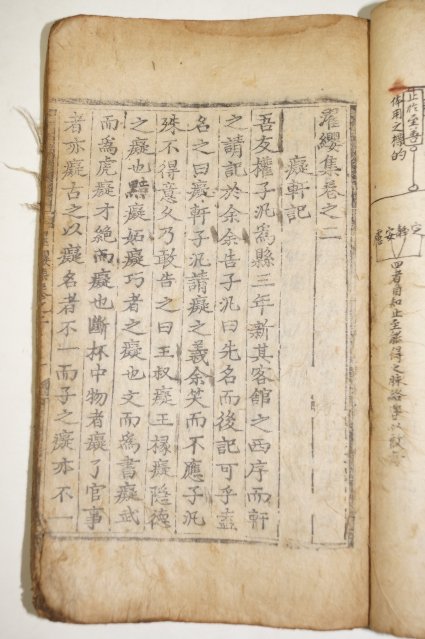 止於至善
体用之標的
四者自知止至
濯纓集卷之二
癡軒記
吾友權子汎爲縣三年新其客館之西序而軒
之請記於余余告子汎曰先名而後記可乎盍
名之曰癡軒子汎請癡之義余笑而不應子汎
殊不得意久乃敢告之曰王叔癡王掾癡隱德
之癡也黠癡妬癡巧者之癡也文而爲書癡武
而爲虎癡才絶而癡也斷杯中物者癡了官事
者亦癡古之以癡名者不一而子之癡亦不一